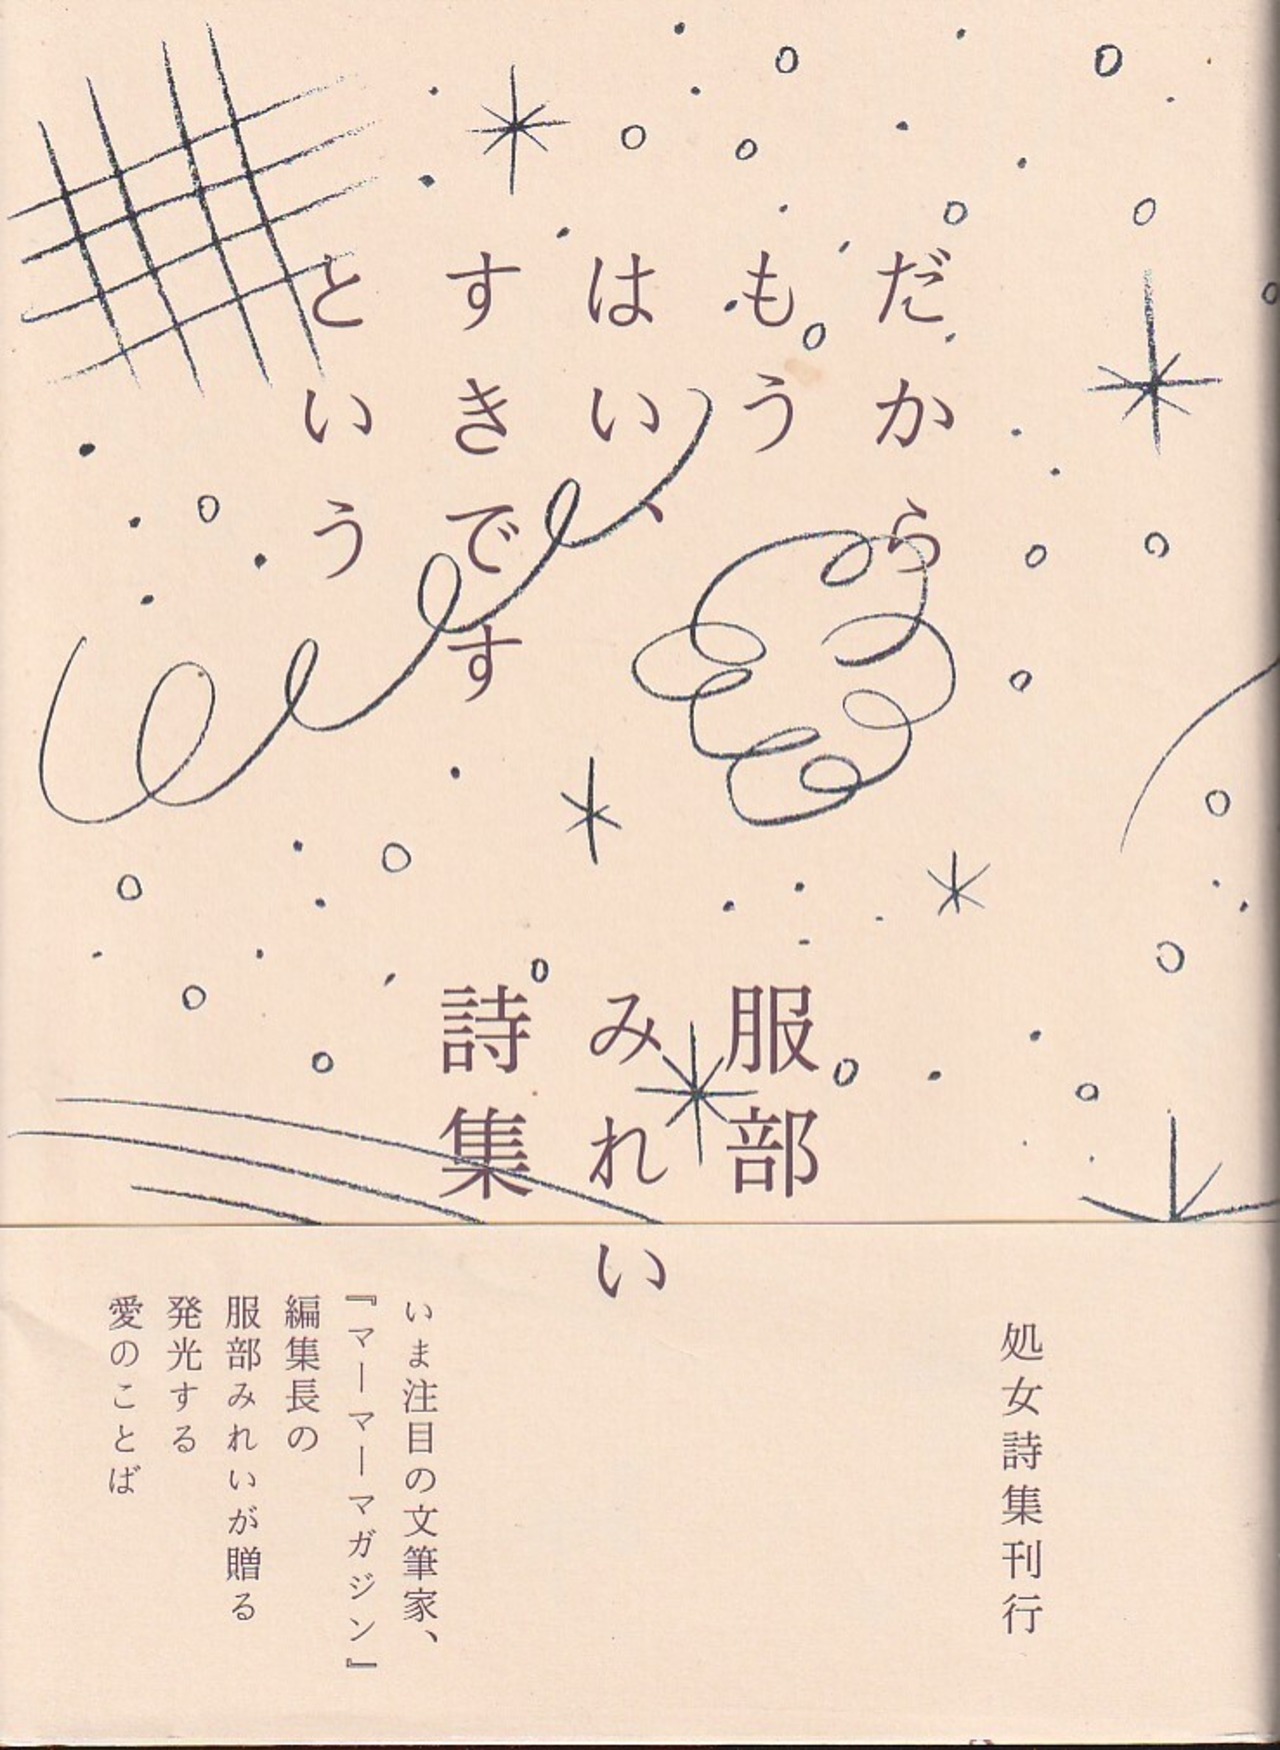 だから
もう
はい、
すきです
という
服部
みれい
詩集
処女詩集刊行
いま注目の文筆家、
『マーマーマガジン』
編集長の
服部みれいが贈る
発光する
愛のことば